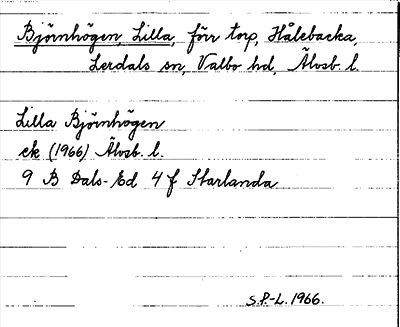 Björnhögen, Lilla, förr torp, Hålebacka,
Lerdals sn, Valbo hd, Älvsb. l.
Lilla Björnhögen
ek (1966) Älvsb. l.
9 B Dals-Ed 4 f Starlanda
S.P.-L. 1966.